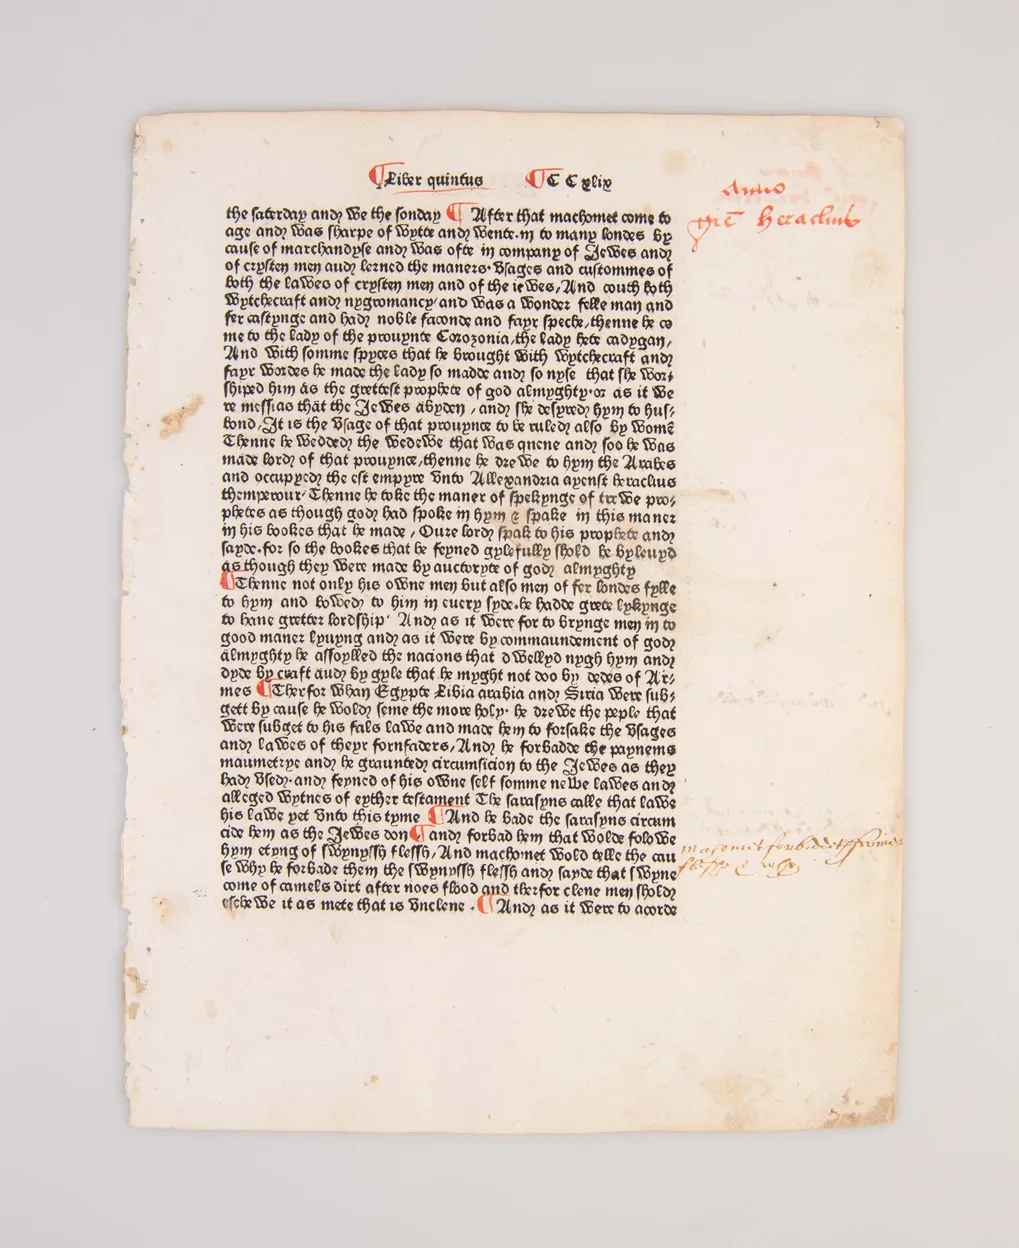 Liber quintus C C xlix
Anno
grē Heraclius
the saterday and we the sonday ¶ After that machomet come to
age and was sharpe of wytte and wente in to many londes by
cause of marchandyse and was ofte in company of Jewes and
of crysten men and lerned the maners vsages and custommes of
both the lawes of crysten men and of the iewes, And couth both
wytchecraft and nygromancy/and was a wonder felle man and
fer castynge and had noble faconde and fayr speche, thenne he co
me to the lady of the prouynte Corozonia, the lady hete cadygan,
And with somme spyces that he brought with wytchecraft and
fayr wordes he made the lady so madde and so nyse that she wor-
shiped him as the grettest prophete of god almyghty or as it we
re messias that the Jewes abyden , and she desyred hym to hus-
bond, It is the vsage of that prouynce to be ruled also by womē
Thenne he wedded the wedewe that was quene and soo he was
made lord of that prouynce, thenne he drewe to hym the Arabes
and occupyed the est empyre vnto Allexandria ayenst heraclius
themperour Thenne he toke the maner of spekynge of trewe pro-
phetes as though god had spoke in hym & spake in this maner
in his bookes that he made , Oure lord spak to his prophete and
sayde. for so the bookes that he feyned gylefully shold be byleuyd
as though they were made by auctoryte of god almyghty
¶ Thenne not only his owne men but also men of fer londes fylle
to hym and bowed to him in euery syde. he hadde grete lykynge
to haue gretter lordship And as it were for to brynge men in to
good maner lyuyng and as it were by commaundement of god
almyghty he assoylled the nacions that dwellyd nygh hym and
dyde by craft and by gyle that he myght not doo by dedes of Ar-
mes ¶ Therfor whan Egypte Libia arabia and Siria were sub-
gett by cause he wold seme the more holy. he drewe the peple that
were subget to his fals lawe and made hem to forsake the vsages
and lawes of theyr fornfaders, And he forbadde the paynems
maumetrye and he graunted circumsicion to the Jewes as they
had vsed. and feyned of his owne self somme newe lawes and
alleged wytnes of eyther testament The sarasyns calle that lawe
his lawe yet vnto this tyme ¶ And he bade the sarasyns circum
cide hem as the Jewes don ¶ and forbad hem that wolde folowe
hym etyng of swynyssh flessh, And machomet wold telle the cau
se why he forbade them the swynyssh flessh and sayde that swyne
come of camels dirt after noes flood and therfor clene men shold
eschewe it as mete that is vnclene . ¶ And as it were to acorde
macomit forbiddeth